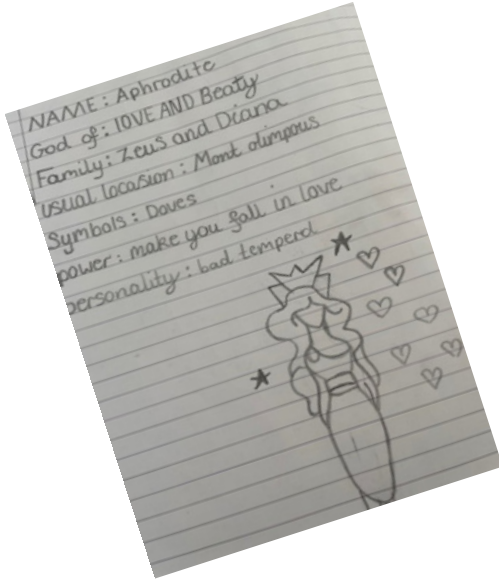 NAME: Aphrodite
God of: lOVE AND Beaty
Family: Zeus and Diana
usual locasion: Mont olimpous
Symbols: Doves
power: make you fall in love
personality: bad temperd